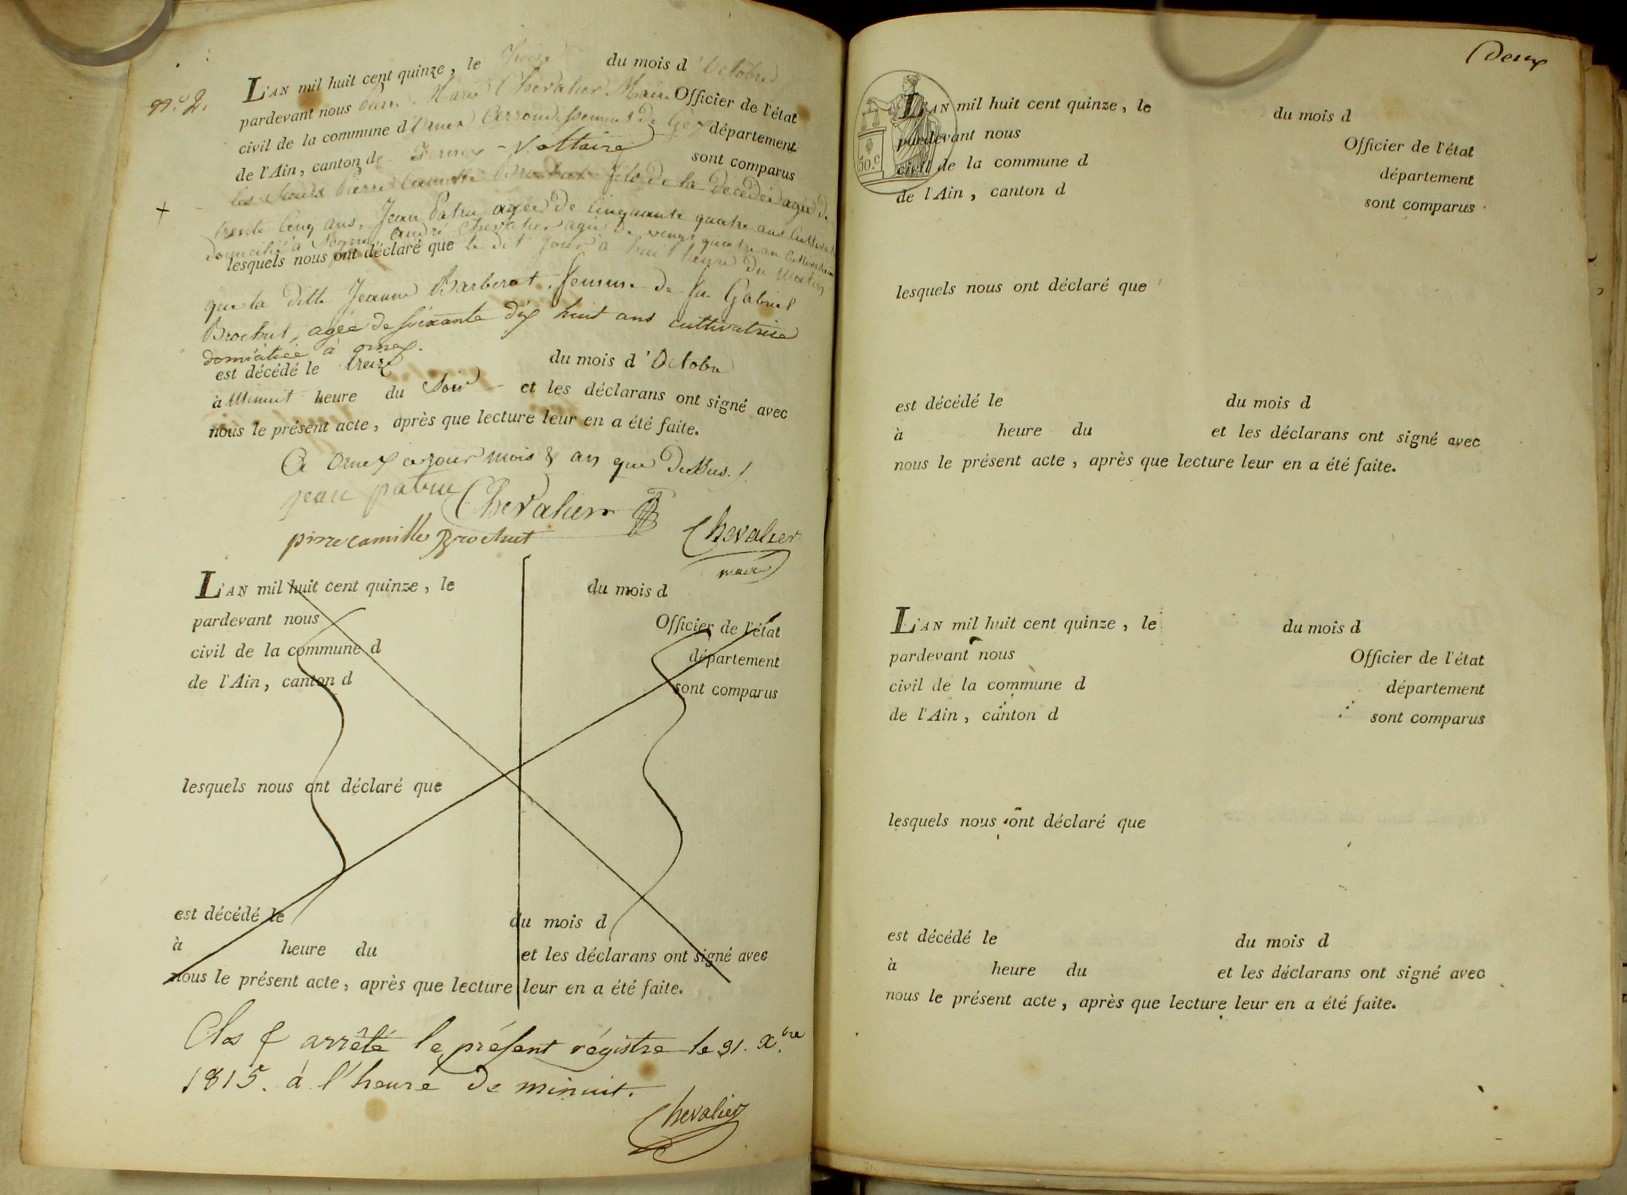 n.º 2.
L'AN mil huit cent quinze, le treize du mois d'Octobre
pardevant nous Marie Chevalier Maire Officier de l'état
civil de la commune d'Ornex arrondissement de Gex département
de l'Ain, canton de Ferney-Voltaire sont comparus
les Sieurs Pierre Camille Brochut fils de la décédée agé de
trente cinq ans, Jean Patru agée de cinquante quatre ans
domicilié à André Chevalier agé de vengt quatre an
lesquels nous ont déclaré que le dit jour à huit heure du matin
que la ditte Jeanne Barberat, femme de feu Gabriel
Brochut, agée de soixante dix huit ans cultivatrice
domiciliée à ornex.
est décédé le treize du mois d'Octobre
à Minuit heure du Soir - et les déclarans ont signé avec
nous le présent acte, après que lecture leur en a été faite.
A Ornex ce jour mois & an que Dessus./.
jean patru Chevalier
pirre camille Brochut Chevalier
maire
L'AN mil huit cent quinze, le du mois d
pardevant nous Officier de l'état
civil de la commune d département
de l'Ain, canton d sont comparus
lesquels nous ont déclaré que
est décédé le du mois d
à heure du et les déclarans ont signé avec
nous le présent acte, après que lecture leur en a été faite.
Clos & arrêté le présent régistre le 31. Xbre
1815. à l'heure de minuit.
Chevalier
Deux
50.c
L'AN mil huit cent quinze, le du mois d
pardevant nous Officier de l'état
civil de la commune d département
de l'Ain, canton d sont comparus
lesquels nous ont déclaré que
est décédé le du mois d
à heure du et les déclarans ont signé avec
nous le présent acte, après que lecture leur en a été faite.
L'AN mil huit cent quinze, le du mois d
pardevant nous Officier de l'état
civil de la commune d département
de l'Ain, canton d sont comparus
lesquels nous ont déclaré que
est décédé le du mois d
à heure du et les déclarans ont signé avec
nous le présent acte, après que lecture leur en a été faite.